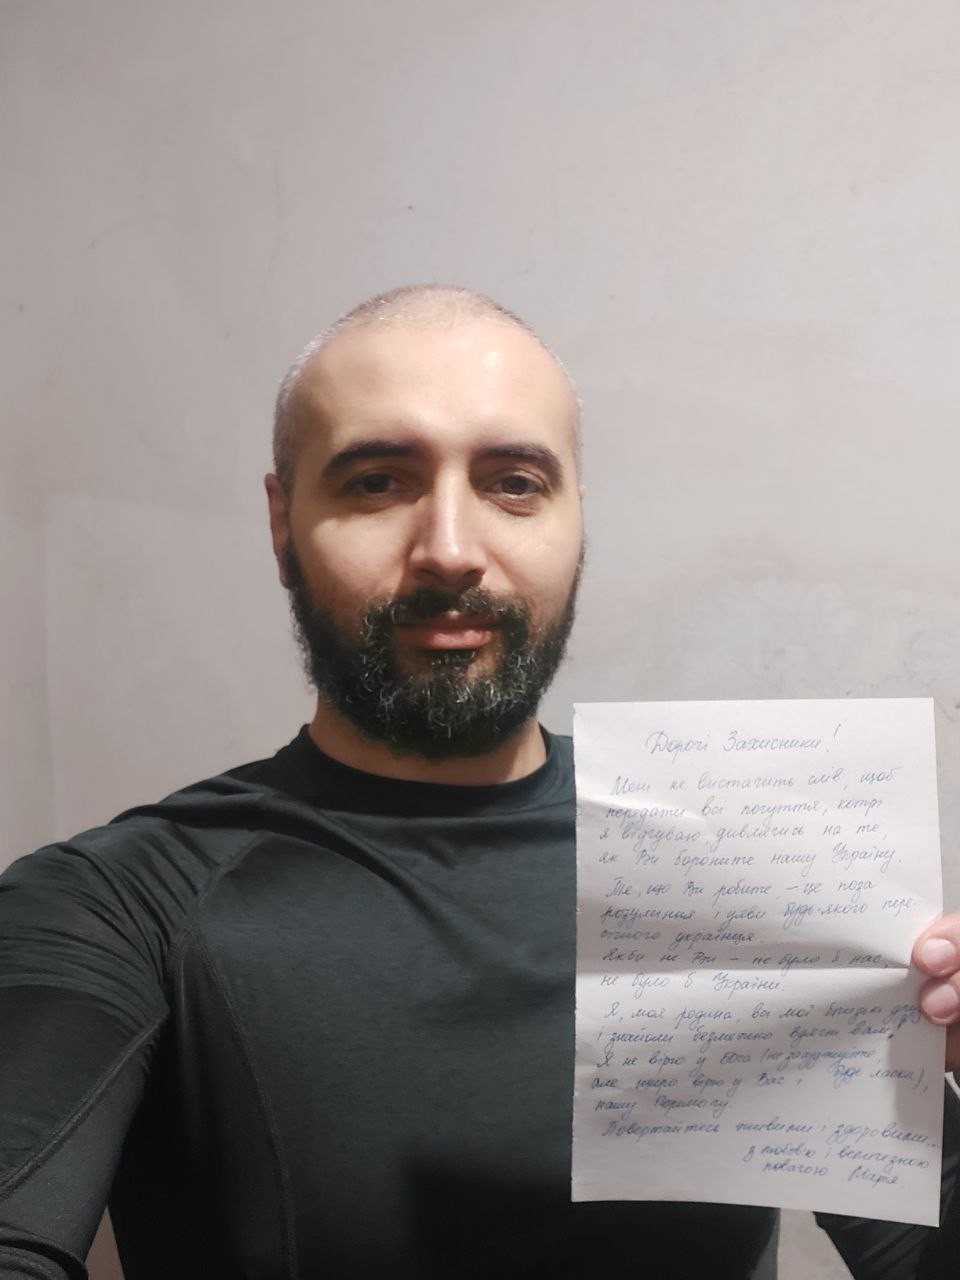 Дорогі Захисники!
Мені не вистачить слів, щоб
передати всі почуття, котрі
я відчуваю, дивлячись на те,
як Ви бороните нашу Україну.
Те, що Ви робите, – це поза
розуміння і уяви будь-якого пере-
січного українця.
Якби не Ви – не було б нас,
не було б України.
Я, моя родина, всі мої близькі друзі
і знайомі безмежно вдячні вам!
Я не вірю у бога (не засуджуйте,
будь ласка),
але щиро вірю у Вас і
нашу Перемогу.
Повертайтесь живими і здоровими...
з любов'ю і величезною
повагою Марія